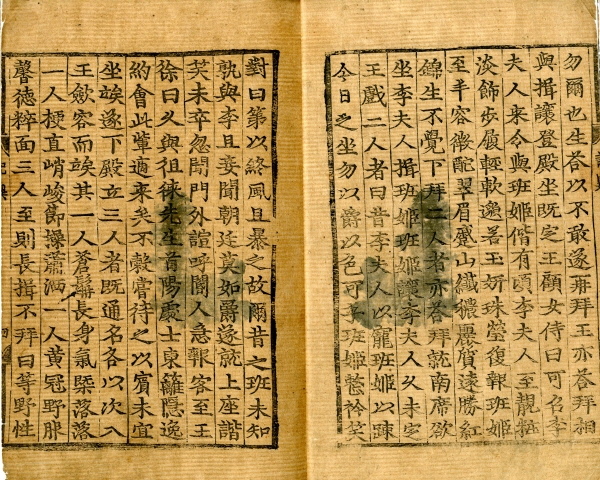 勿爾也生荅以不敢遂再拜王亦荅拜相
與揖讓登殿坐既定王顧女侍曰可名李
夫人來令與班姬偕有頃李夫人至靚粧
淡飾步屧輕軟逸若玉姸珠瑩復報班姬
至丰容微酡翠眉蹙山纖穠麗質遠勝紅
錦生不覺下拜二人者亦荅拜就南席欲
坐李夫人揖班姬班姬讓李夫人久未定
王戲二人者曰昔李夫人以寵班姬以踈
今日之坐勿以爵以色可乎班姬衿笑
對曰第以終風且暴之故爾昔之班未知
孰與李且妾聞朝廷莫如爵遂就上座諧
笑未卒忽聞門外諠呼閽人急報客至王
徐曰久與徂徠先生首陽處士東籬隱逸
約會此輩適來矣不穀嘗待之以賓未宜
坐竢遂下殿立三人者既通名各以次入
王斂容而竢其一人蒼髥長身氣槩落落
一人梗直峭峻節操瀟洒一人黃冠野服
馨德粹面三人至則長揖不拜曰等野性